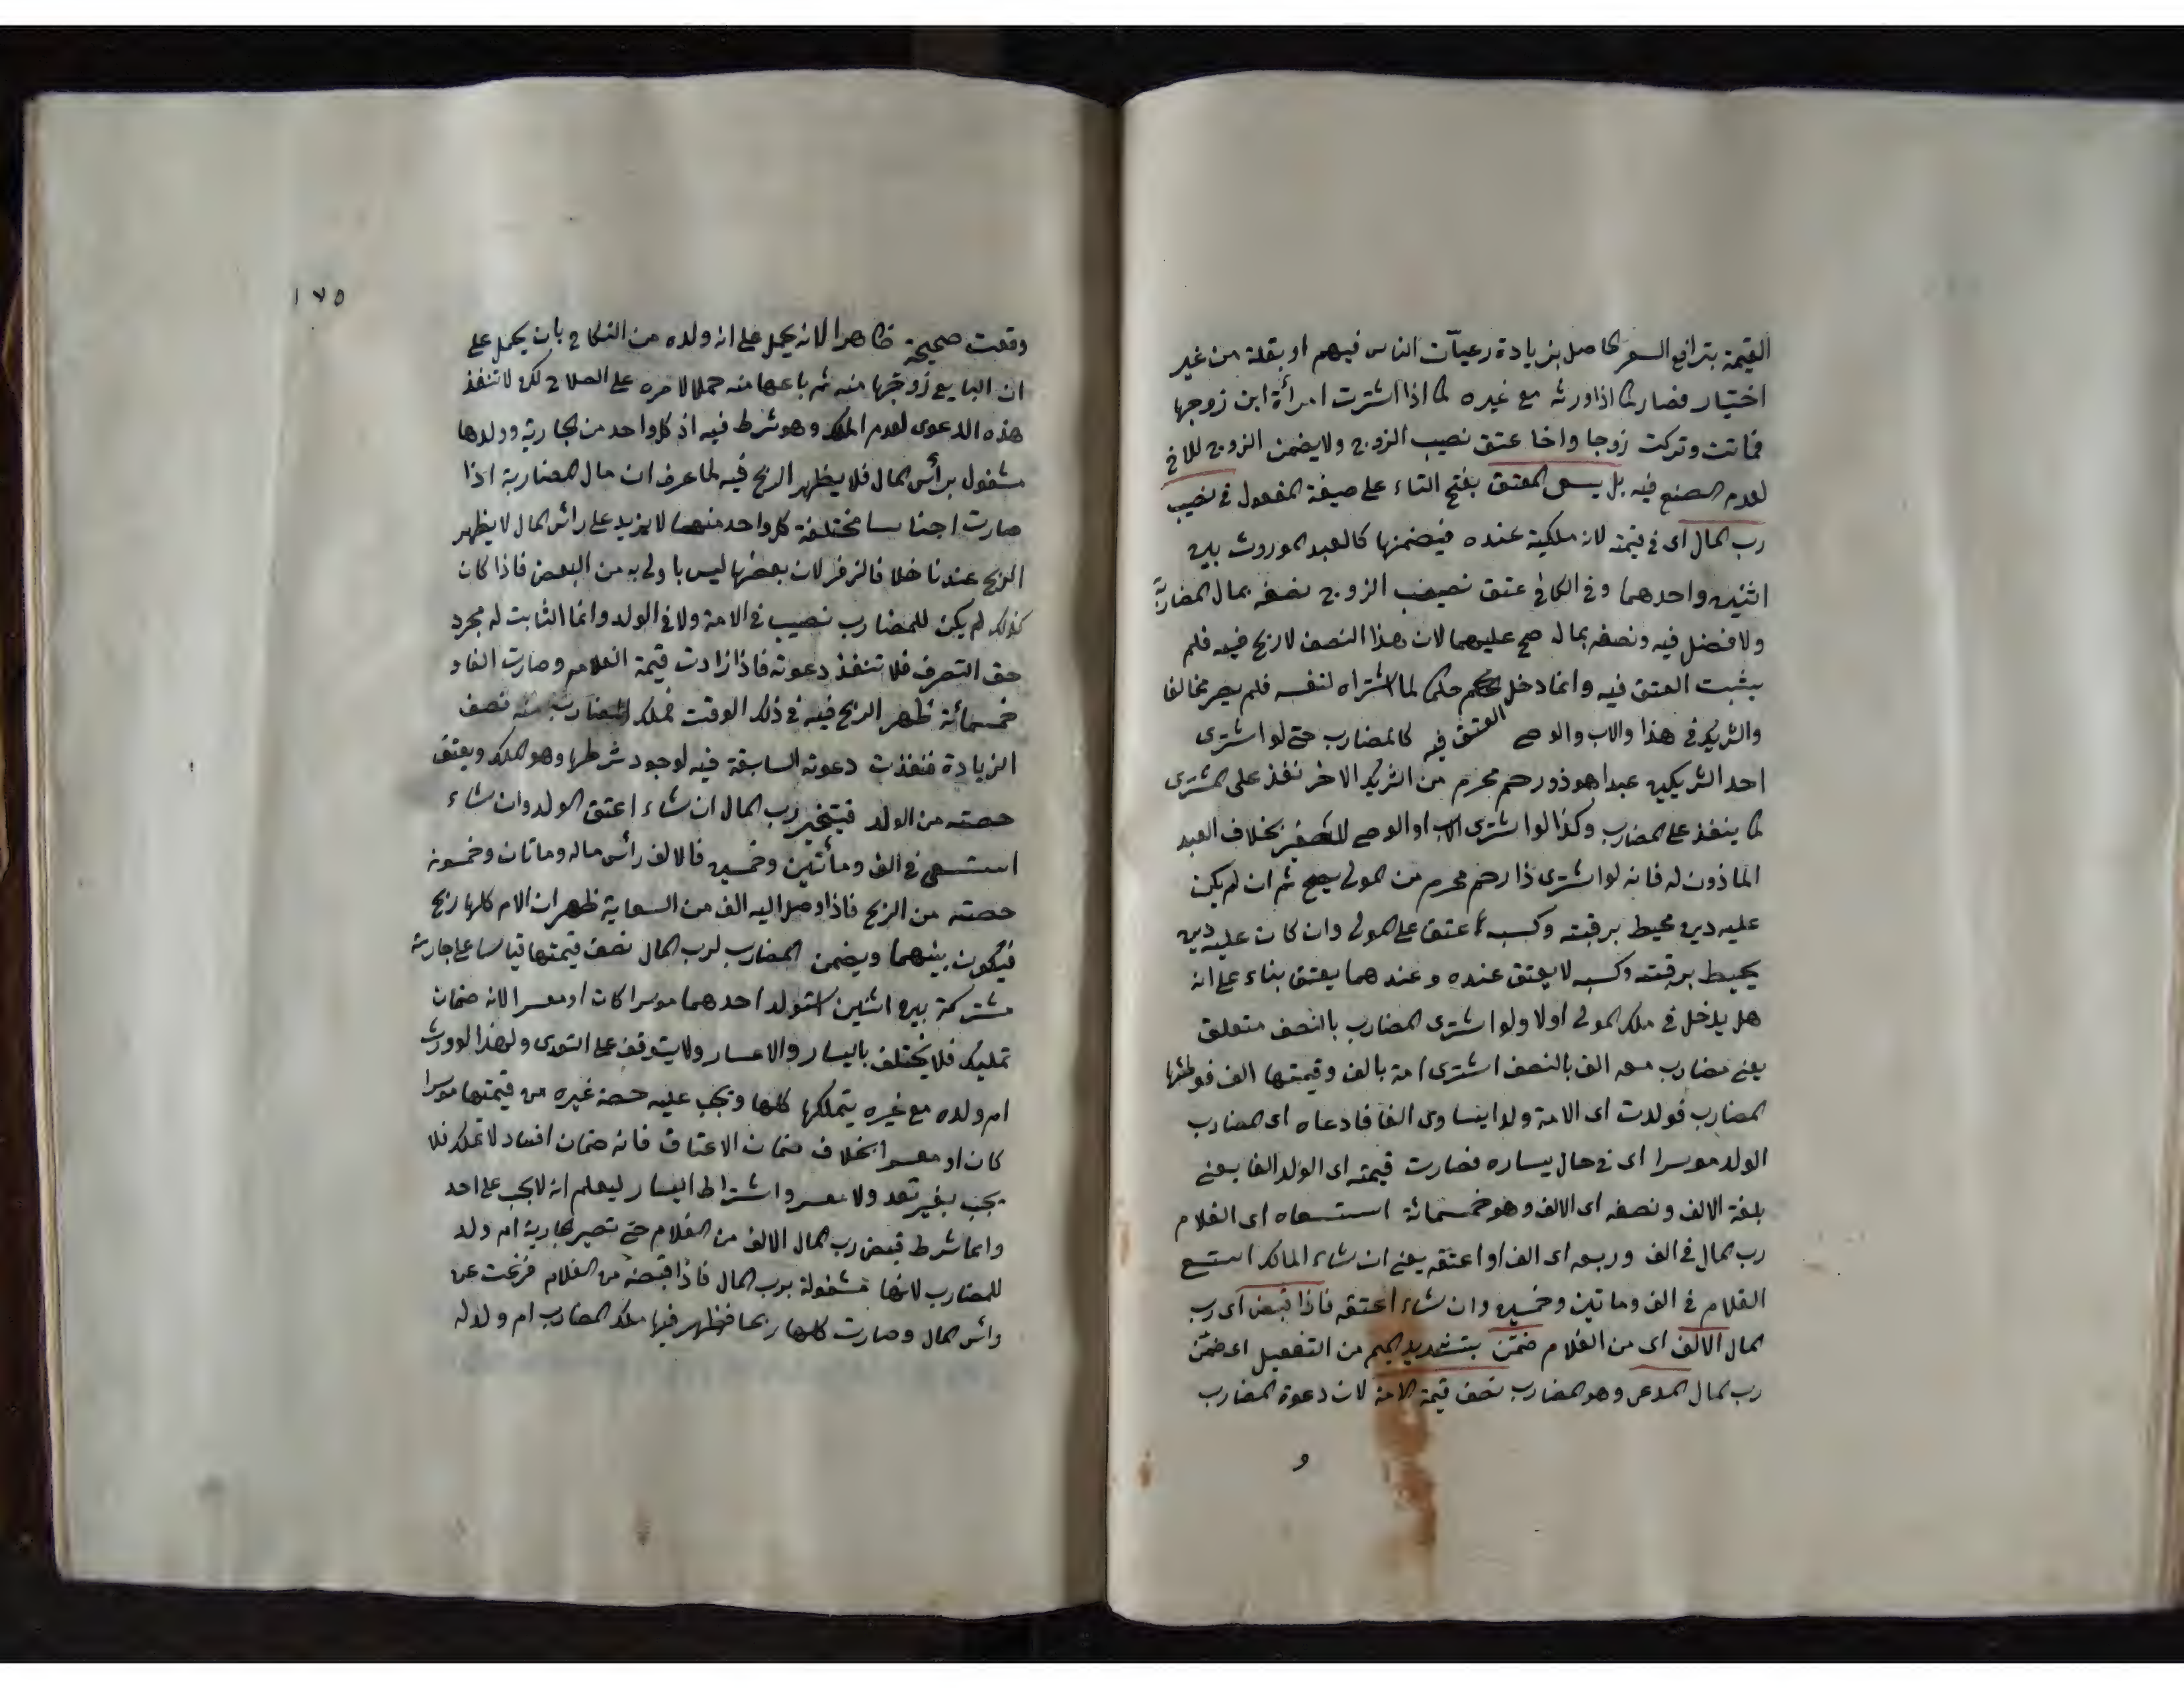 القيمة بترافع السعر الحاصل بزيادة رعيات الناس فيهم او بقلة من غير
اختيار فصار كما اذا ورثه مع غيره كما اذا اشترت امرأة ابن زوجها
فماتت وتركت زوجا واخا عتق نصيب الزوج ولا يضمن الزوج للاخ
لعدم الصنع فيه بل يسعى المعتق بفتح التاء على صيغة المفعول في نصيب
رب المال اى في قيمته لان ملكيته عنده فيضمنها كالعبد الموروث بين
اثنين واحدهما وفي الكافي عتق نصيب الزوج نصفه بمال المضاربة
ولا فضل فيه ونصفه بماله صح عليهما لان هذا النصف لا ربح فيه فلم
يثبت العتق فيه وانما دخل العتق فيه حكما لما اشتراه لنفسه فلم يصر مخالفا
والشريك في هذا والاب والوصى كالمضارب حتى لو اشترى
احد الشريكين عبدا هو ذو رحم محرم من الشريك الاخر نفذ على المشترى
كما ينفذ على المضارب وكذا لو اشترى الاب او الوصى للصغير بخلاف العبد
الماذون له فانه لو اشترى ذا رحم محرم من المولى يصح ثم ان لم يكن
عليه دين محيط برقبته وكسبه عتق على المولى وان كان عليه دين
يحيط برقبته وكسبه لا يعتق عنده وعندهما يعتق بناء على انه
هل يدخل في ملك المولى اولا ولو اشترى المضارب بالنصف متعلق
يعنى مضارب معه الف بالنصف اشترى امة بالف وقيمتها الف فوطئها
المضارب فولدت اى الامة ولدا يساوى الفا فادعاه اى المضارب
الولد موسرا اى في حال يساره فصارت قيمته اى الولد الفا يعنى
بلغة الالف ونصفه اى الالف وهو خمسمائة استسعاه اى الغلام
رب المال في الف وربعه اى الف او اعتقه يعنى ان شاء المالك استسع
الغلام في الف وماتين وخمسين وان شاء اعتقه فاذا قبض اى رب
المال الالف اى من الغلام ضمّن بتشديد الميم من التفعيل اى ضمّن
رب المال المدعى وهو المضارب نصف قيمة الامة لان دعوة المضارب
و
١٧٥
وقعت صحيحة ظاهرا لانه يحمل على انه ولده من النكاح بان يحمل على
ان البايع زوجها منه ثم باعها منه حملا لامره على الصلاح لكن لا تنفذ
هذه الدعوى لعدم الملك وهو شرط فيه اذ كل واحد من الجارية وولدها
مشغول برأس المال فلا يظهر الربح فيه لما عرف ان مال المضاربة اذا
صارت اجناسا مختلفة كل واحد منهما لا يزيد على رأس المال لا يظهر
الربح عندنا خلافا لزفر لان بعضها ليس باولى به من البعض فاذا كان
كذلك لم يكن للمضارب نصيب في الامة ولا في الولد وانما الثابت له مجرد
حق التصرف فلا تنفذ دعوته فاذا زادت قيمة الغلام وصارت الفا و
خمسمائة ظهر الربح فيه في ذلك الوقت فملك المضارب منه نصف
الزيادة فنفذت دعوته السابقة فيه لوجود شرطها وهو الملك ويعتق
حصته من الولد فيتخير رب المال ان شاء اعتق الولد وان شاء
استسعى في الف ومأتين وخمسين فالالف رأس ماله وماتان وخمسون
حصته من الربح فاذا وصل اليه الف من السعاية ظهر ان الام كلها ربح
فيكون بينهما ويضمن المضارب لرب المال نصف قيمتها قياسا على جارية
مشتركة بين اثنين استولد احدهما موسرا كان او معسرا لانه ضمان
تمليك فلا يختلف باليسار والاعسار ولا يتوقف على التعدى ولهذا لو ورث
ام ولده مع غيره يتملكها كلها ويجب عليه حصة غيره من قيمتها موسرا
كان او معسرا بخلاف ضمان الاعتاق فانه ضمان افساد لا تملك فلا
يجب بغير تعد ولا معسر واشتراط اليسار ليعلم انه لا يجب على احد
وانما شرط قبض رب المال الالف من الغلام حتى تصير الجارية ام ولد
للمضارب لانها مشغولة برب المال فاذا قبضه من الغلام فرغت عن
رأس المال وصارت كلها ربحا فظهر فيها ملك المضارب ام ولد له